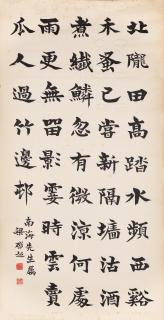 北隴田高踏水頻西谿
禾蚤已嘗新隔墻沽酒
煮纖鱗忽有微涼何處
雨更無畱影霎時雲賣
瓜人過竹邊邨
南海先生屬
梁啟超